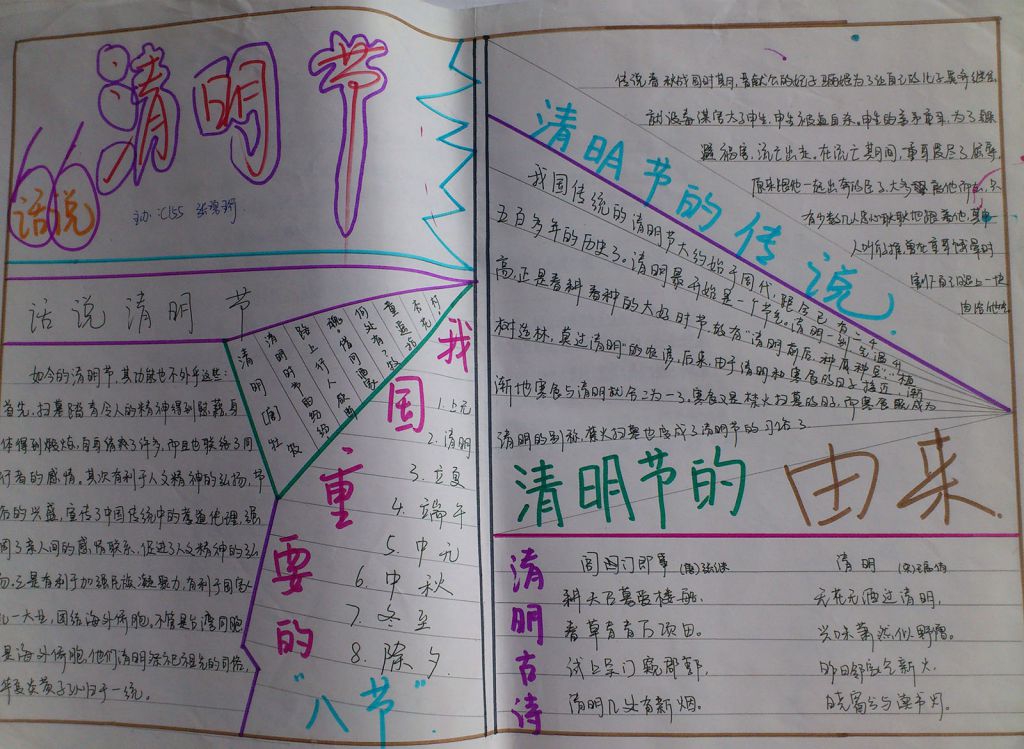 话说
清明节
主办:C155
话说清明节
如今的清明节,其功能也不外乎这些:
首先,扫墓踏青令人的精神得到
体得到锻炼,自身
行者的感情。其次有利于人文精神的弘扬,节
的兴盛,宣传了中国传统中的孝道伦理,强
了亲人间的感情联系,促进了人文精神的弘
是有利于加强民族凝聚力,有利于国
一大业,团结海外侨胞,不管是台湾同胞
是海外侨胞,他们清明祭祀祖先的习俗,
归于一统。
清明(唐)杜牧
清明时节雨纷纷
路上行人欲断
魂。借问酒家
何处有?牧
童遥指
杏花
村。
我国重要的“八节”
1.上元
2.清明
3.立夏
4.端午
5.中元
6.中秋
7.冬至
8.除夕
清明节的传说
传说春秋战国时期,
就设毒谋害太子申生,申生
避祸害,流亡出走,在流亡期间,重耳受尽了屈辱。
原来跟他一起出奔的臣子,大多
有少数几人忠心耿耿地跟着他,其
人叫介子推,
割下自己腿上一块
肉给他吃
我国传统的清明节大约始于周代,距今已有二千
五百多年的历史了。清明最开始是一个节气。清明一到气温升
高,正是春耕春种的大好时节故有“清明前后,种瓜种豆”“植
树造林,莫过清明”的农谚,后来,由于清明和寒食的日子接近,渐
渐地寒食与清明就合二为一了,寒食又是禁火扫墓的日子,即寒食既成为
清明的别称,禁火扫墓也变成了清明节的习俗了
清明节的由来
清明古诗
闾门即事(唐)张继
耕夫召募逐楼船,
春草青青万顷田。
试上吴门窥郡郭,
清明几处有新烟。
清明
无花无酒过清明,
兴味萧然似野僧。
昨日邻家乞新火,
晓窗分与读书灯。